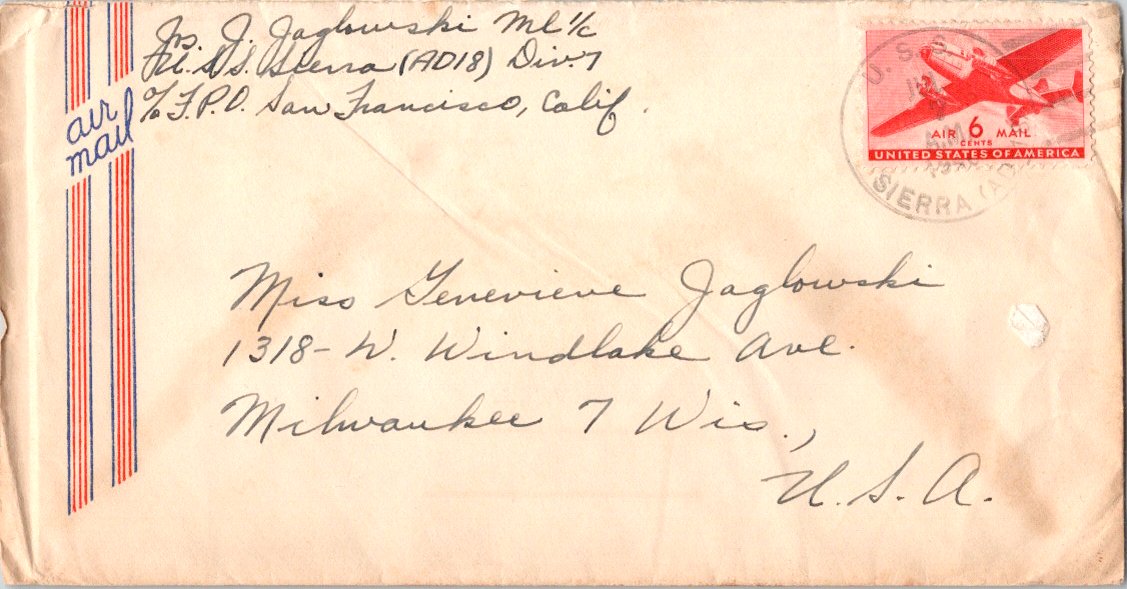 Jos. J. Jaglowski Ml 1/c
U.S.S. Sierra (AD18) Div. 7
c/o F.P.O. San Francisco, Calif.
air
mail
U.S.S.
SIERRA (AD
AIR 6 MAIL
CENTS
UNITED STATES OF AMERICA
Miss Genevieve Jaglowski
1318 - W. Windlake Ave.
Milwaukee 7 Wis.,
U.S.A.